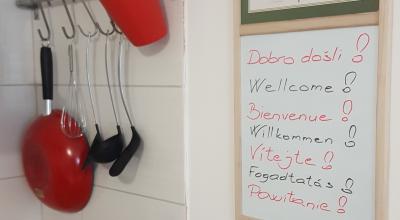 Dobro došli!
Wellcome!
Bienvenue!
Willkommen!
Vítejte!
Fogadtatás!
Powitanie!